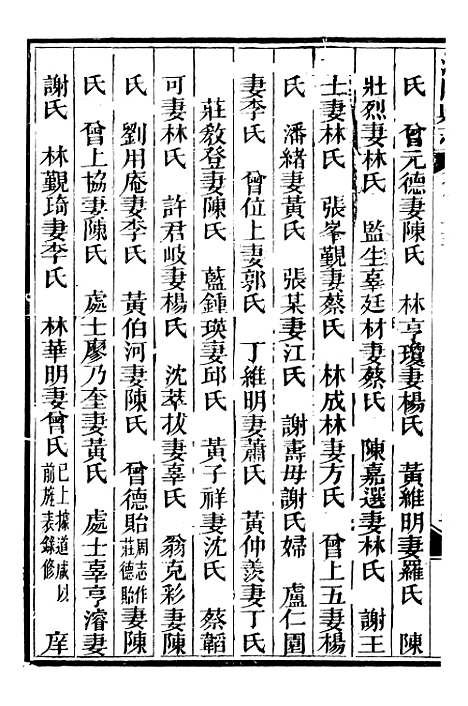 氏　曾元德妻陳氏　林亨瓊妻楊氏　黃維明妻羅氏　陳
壯烈妻林氏　監生辜廷材妻蔡氏　陳嘉選妻林氏　謝王
士妻林氏　張峯覲妻蔡氏　林成林妻方氏　曾上五妻楊
氏　潘緒妻黃氏　張某妻江氏　謝壽母謝氏婦　盧仁園
妻李氏　曾位上妻郭氏　丁維明妻蕭氏　黃仲羨妻丁氏
莊敎登妻陳氏　藍鍾瑛妻邱氏　黃子祥妻沈氏　蔡韜
可妻林氏　許君岐妻楊氏　沈萃拔妻辜氏　翁克彩妻陳
氏　劉用庵妻李氏　黃伯河妻陳氏　曾德貽周志作莊德貽妻陳
氏　曾上協妻陳氏　處士廖乃奎妻黃氏　處士辜亨濬妻
謝氏　林覲琦妻李氏　林華明妻曾氏已上據道咸以前旌表錄修　庠